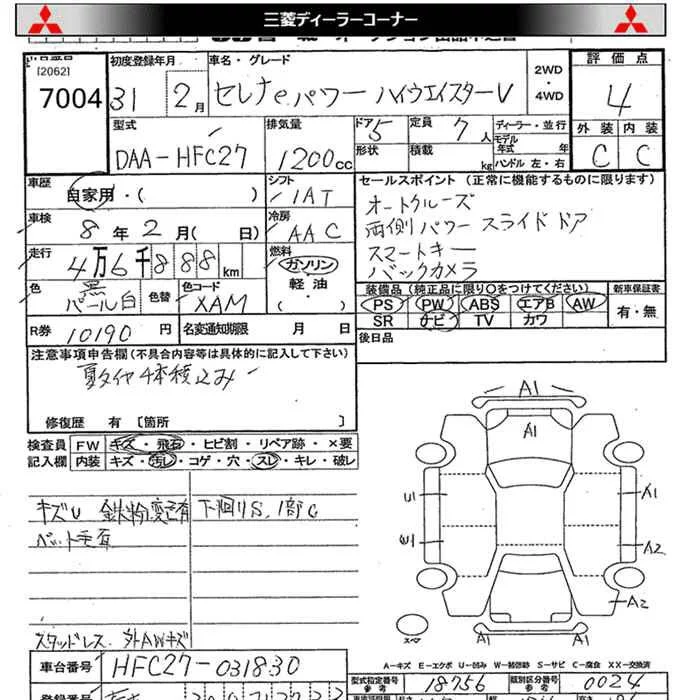 三菱ディーラーコーナー
[2062]
7004
初度登録年月
31 2月
車名・グレード
セレナeパワー ハイウェイスターV
2WD
・
4WD
評価点
4
外装 内装
C C
型式
DAA-HFC27
排気量
1200cc
ドア 5
形状
定員 7人
積載 kg
ディーラー・並行
モデル年式 年
ハンドル 左・右
車歴
自家用・( )
シフト
IAT
車検
8年2月( 日)
冷房
AAC
走行
4万6千888km
燃料
ガソリン
・
軽油
・
( )
色
黒
パール白
色替
色コード
XAM
R券 10190円
名変通知期限 月 日
セールスポイント (正常に機能するものに限ります)
オートクルーズ
両側パワースライドドア
スマートキー
バックカメラ
装備品(純正品に限り○をつけてください)
PS PW ABS エアB AW
SR ナビ TV カワ
新車保証書
有・無
後日品
注意事項申告欄(不具合内容等は具体的に記入して下さい)
夏タイヤ4本積込み
修復歴 有 [箇所 ]
検査員
記入欄
FW キズ・飛石・ヒビ割・リペア跡・×要
内装 キズ・汚レ・コゲ・穴・スレ・キレ・破レ
キズU 鉄粉 下回りS, 1部C
ペット毛有
スタッドレス 外AWキズ
A1
A1
U1
A1
A2
A2
A1 A1
スペア
A-キズ E-エクボ U-凹み W-補修跡 S-サビ C-腐食 XX-交換済
車台番号 HFC27-031830
型式指定番号
参考
18756
類別区分番号
参考
0024
登録番号